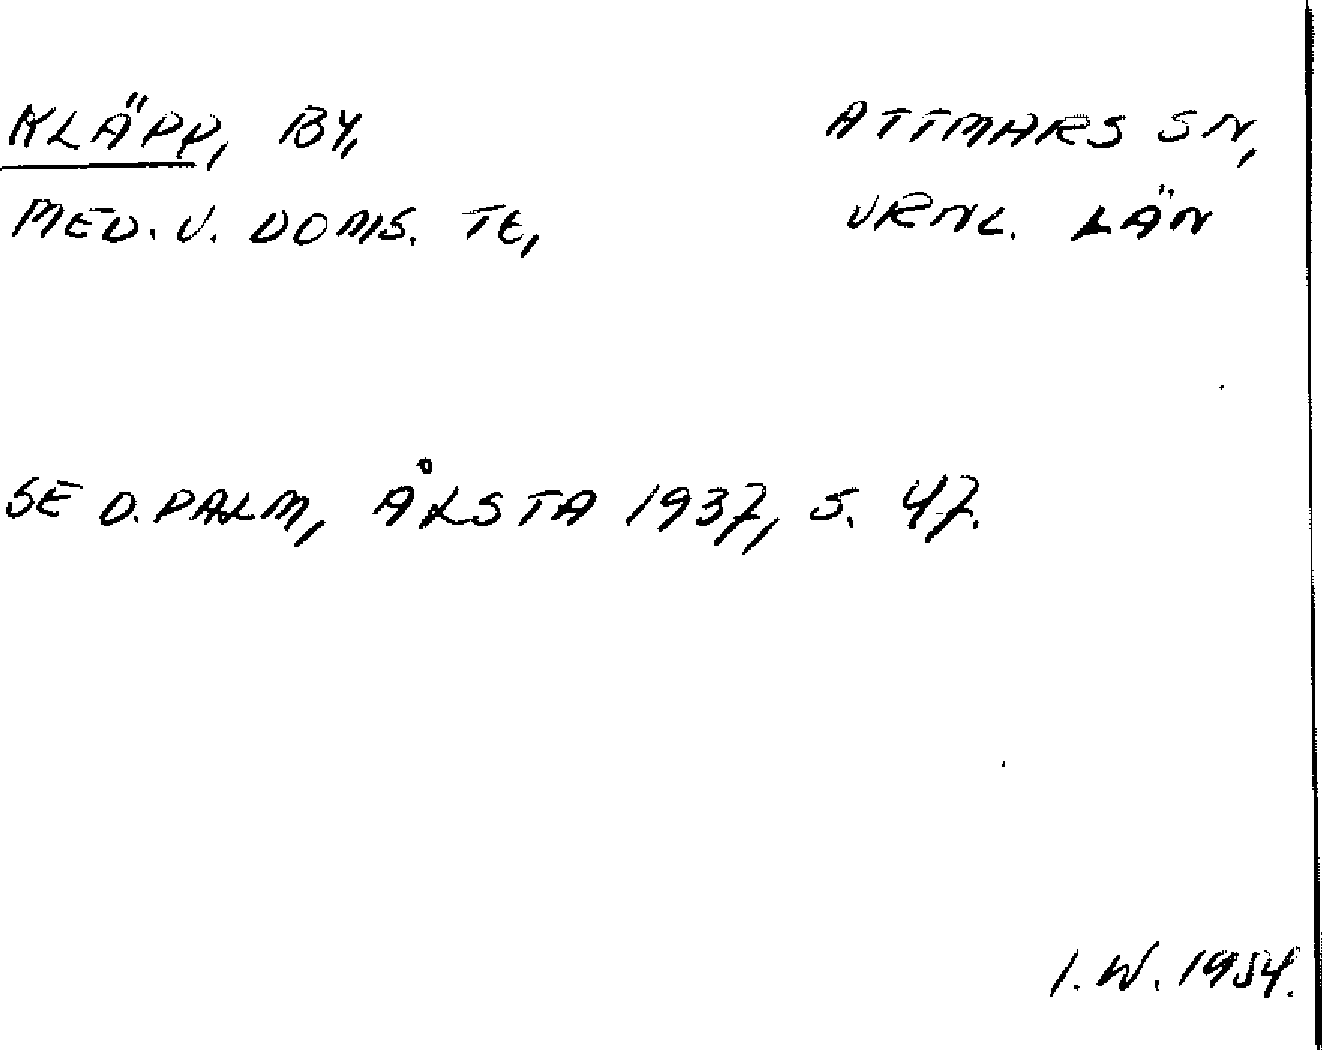 KLÄPP, BY, ATTMARS SN,
MED. V. DOMS. TE, VRNL. LÄN
SE D. PALM, ÅLSTA 1937, S. 47.
I. W. 1954.